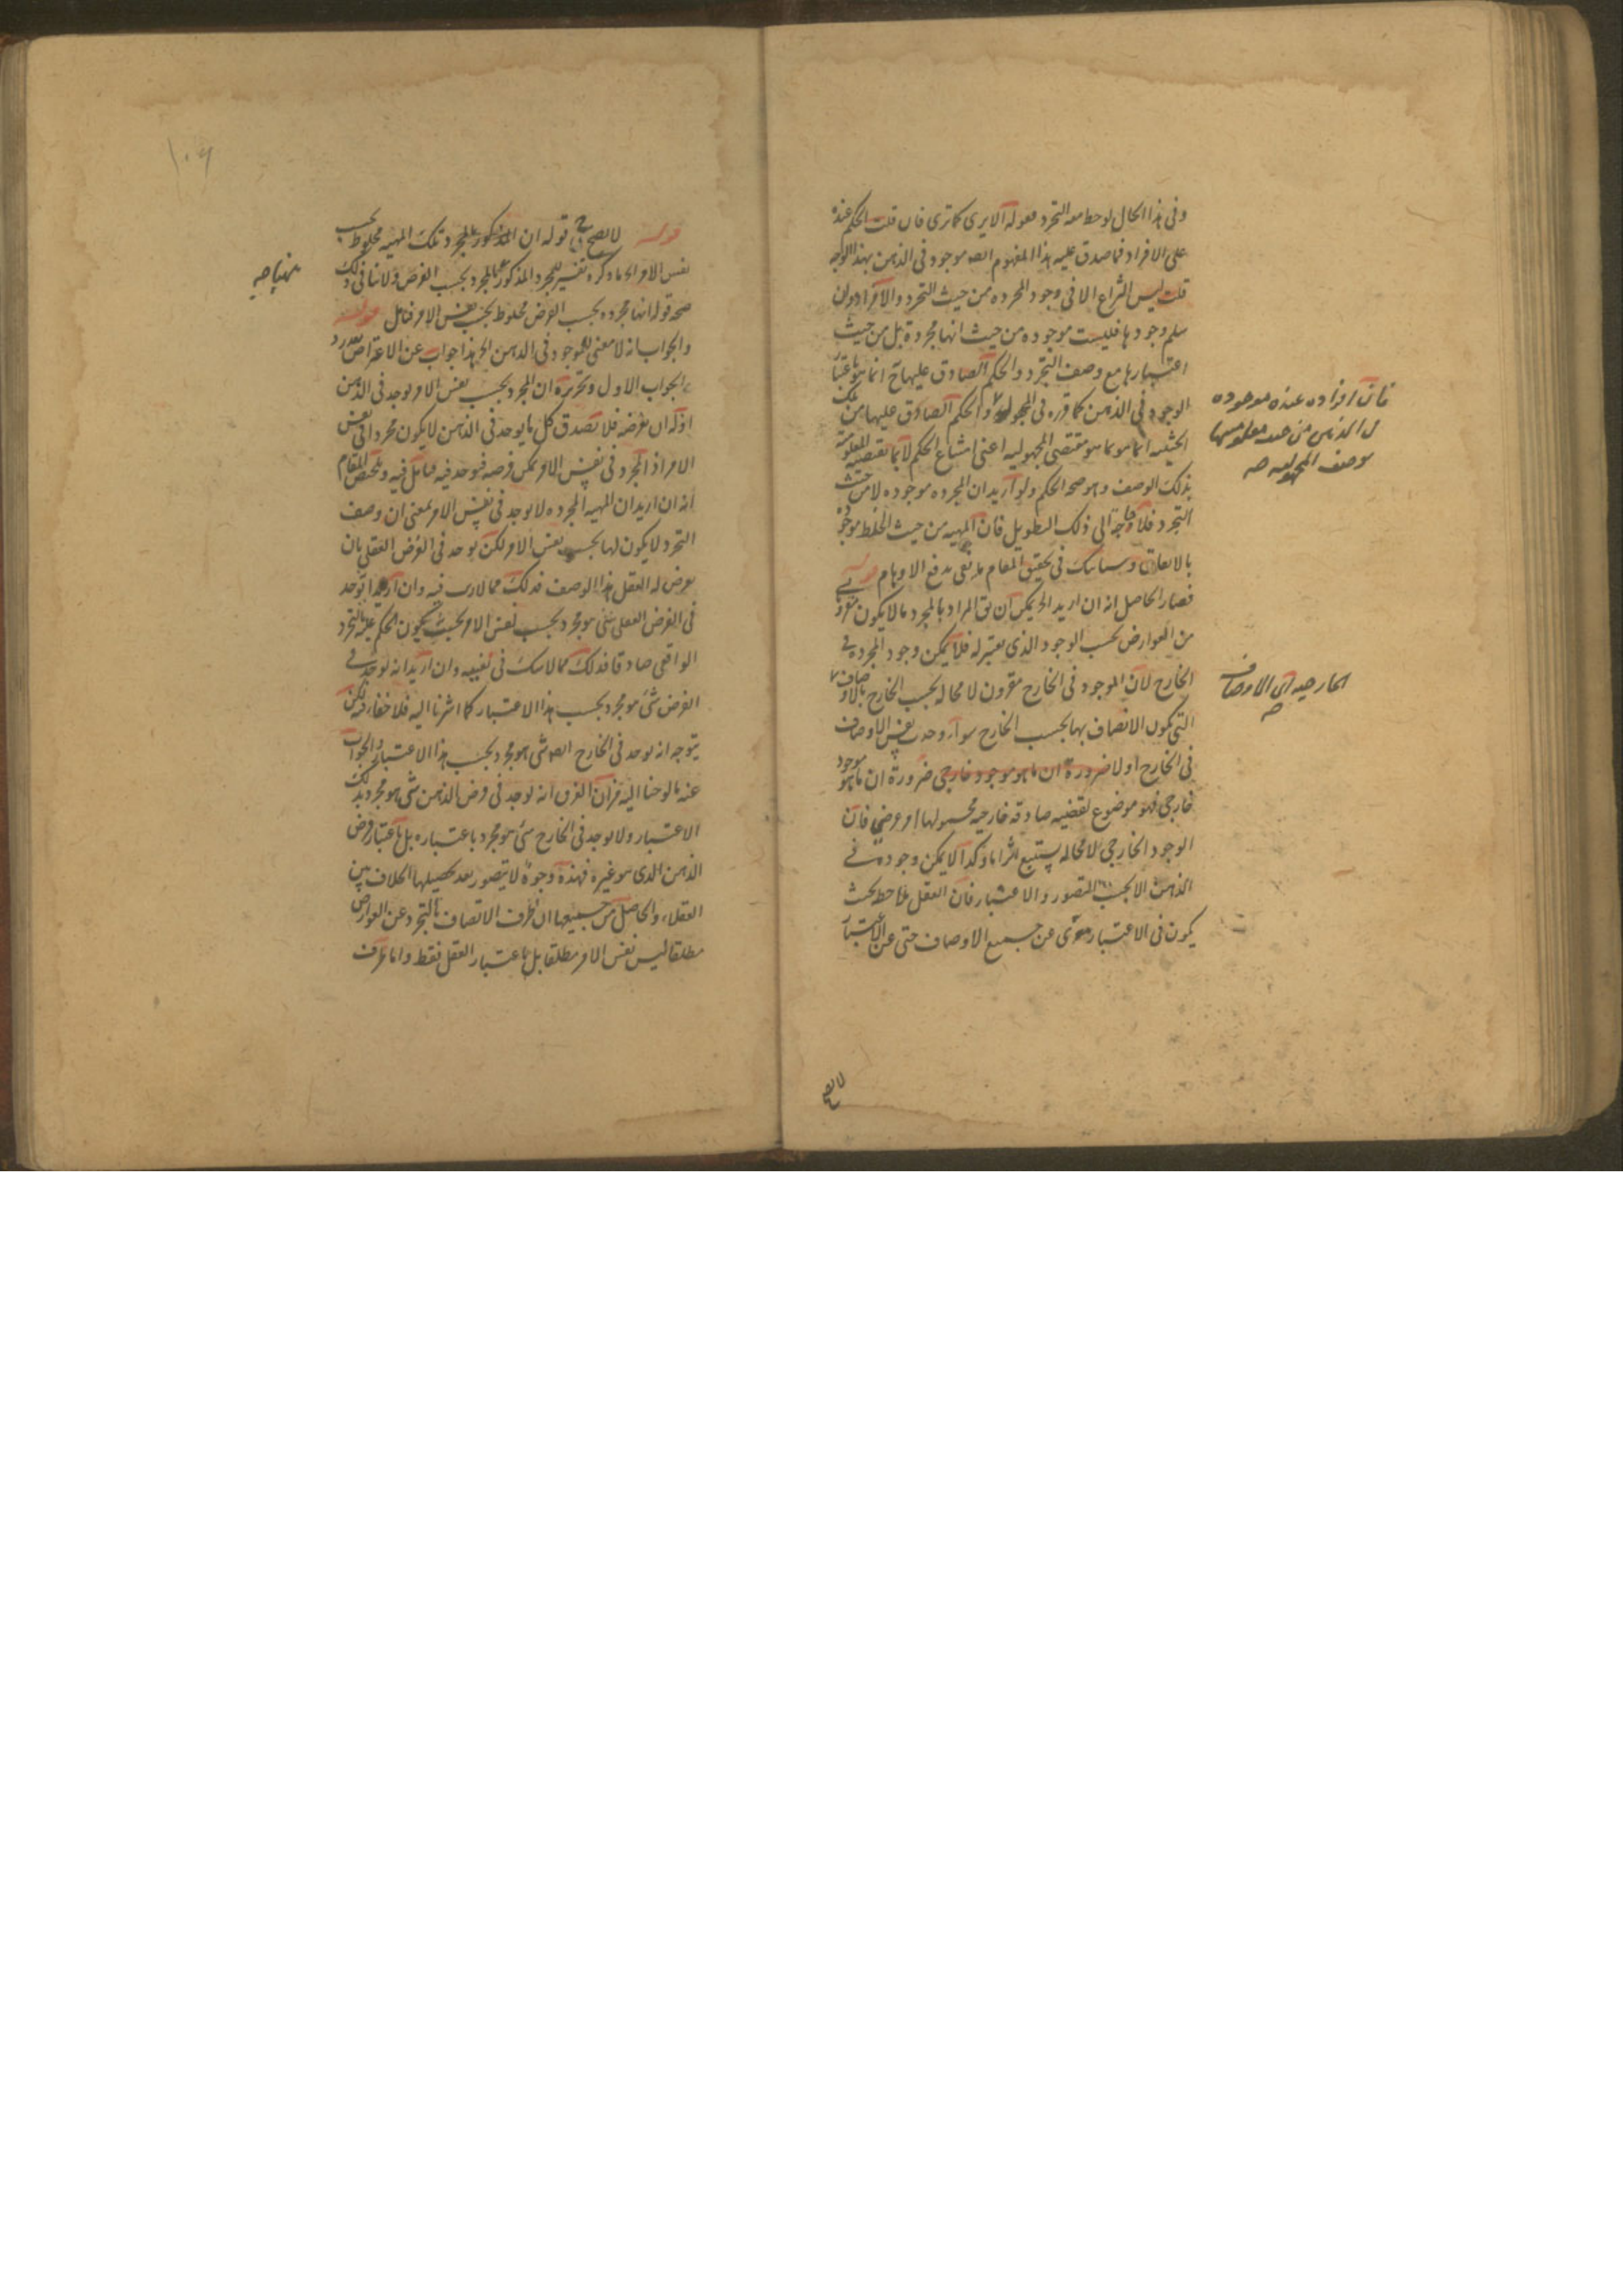 وفى هذا الحال لوحظ معه التجرد فقوله الا يرى كما ترى فان قلت الحكم عنده
على الافراد فما صدق عليه هذا المفهوم ايضا موجود فى الذهن بهذا الوجه
قلت ليس النزاع الا فى وجود المجرده من حيث التجرد والافراد وان
سلم وجودها فليست موجوده من حيث انها مجردة بل من حيث
اعتبارها مع وصف التجرد والحكم الصادق عليها انما هو باعتبار
الوجود فى الذهن كما قرره فى المجهول والحكم الصادق عليها من تلك
الحيثيه انما هو بما هو مقتضى المجهوليه اعنى امتناع الحكم لا بما تقتضيه المعلومية
بذلك الوصف وهو صحه الحكم ولو اريد ان المجرده موجوده لا من حيث
التجرد فلا حاجة الى ذلك التطويل فان المهيه من حيث الخلط موجودة
بالاتفاق وسياتيك فى تحقيق المقام ما يفى بدفع الاوهام قوله
فصار الحاصل انه ان اريد الخ يمكن ان يق المراد بالمجرد ما لا يكون مقرونا بشئ
من العوارض بحسب الوجود الذى يعتبر له فلا يمكن وجود المجرده فى
الخارج لان الموجود فى الخارج مقرون لا محاله بحسب الخارج بالاوصاف
التى يكون الاتصاف بها بحسب الخارج سواء وجدت نفس الاوصاف
فى الخارج او لا ضرورة ان ما هو موجود خارجى ضرورة ان ما هو موجود
خارجى فهو موضوع لقضيه صادقه خارجيه محمولها امر عرضى فان
الوجود الخارجى لا محاله يستتبع اثرا ما وكذا لا يمكن وجوده فى
الذهن الا بحسب التصور والاعتبار فان العقل يلاحظ بحيث
يكون فى الاعتبار معرى عن جميع الاوصاف حتى عن الاعتبار
فان افراده عنده موجوده
فى الذهن من حيث معلوميتها
بوصف المجهوليه صح
الخارجيه اى الاوصاف
صح
لا يصح
١٠٩
قوله لا يصح ح قوله ان المذكور بالمجرد تلك المهيه مخلوط بحسب
نفس الامر الخ ما ذكره تفسير للمجرد المذكور بالمجرد بحسب الفرض ولا ينافى ذلك
صحه قوله انها مجرده بحسب الفرض مخلوط بحسب نفس الامر فتامل قوله
والجواب انه لا معنى للموجود فى الذهن الخ هذا جواب عن الاعتراض
الجواب الاول وتحريره ان المجرد بحسب نفس الامر يوجد فى الذهن
اذ له ان يفرضه فلا تصدق كل ما يوجد فى الذهن لا يكون مجردا فى نفس
الامر اذ المجرد فى نفس الامر يمكن فرضه فيوجد فيه فتامل فيه وتلخص المقام
انه ان اريد ان المهيه المجرده لا يوجد فى نفس الامر بمعنى ان وصف
التجرد لا يكون لها بحسب نفس الامر لكن يوجد فى الفرض العقلى بان
يفرض له العقل هذا الوصف فذلك مما لا ريب فيه وان اريد انه يوجد
فى الفرض العقلى شئ هو مجرد بحسب نفس الامر بحيث يكون الحكم عليه بالتجرد
الواقعى صادقا فذلك مما لا شك فى نفيه وان اريد انه يوجد فى
الفرض شئ هو مجرد بحسب هذا الاعتبار كما اشرنا اليه فلا خفاء فيه لكن
يتوجه انه يوجد فى الخارج ايضا شئ هو مجرد بحسب هذا الاعتبار والجواب
عنه ما لوحنا اليه من ان الفرق انه يوجد فى فرض الذهن شئ هو مجرد بذلك
الاعتبار ولا يوجد فى الخارج شئ هو مجرد باعتباره بل باعتبار فرض
الذهن الذى هو غيره فهذه وجوه لا يتصور بعد تحصيلها الخلاف بين
العقلاء والحاصل من جميعها ان ظرف الاتصاف بالتجرد عن العوارض
مطلقا ليس نفس الامر مطلقا بل باعتبار العقل فقط واما ظرف